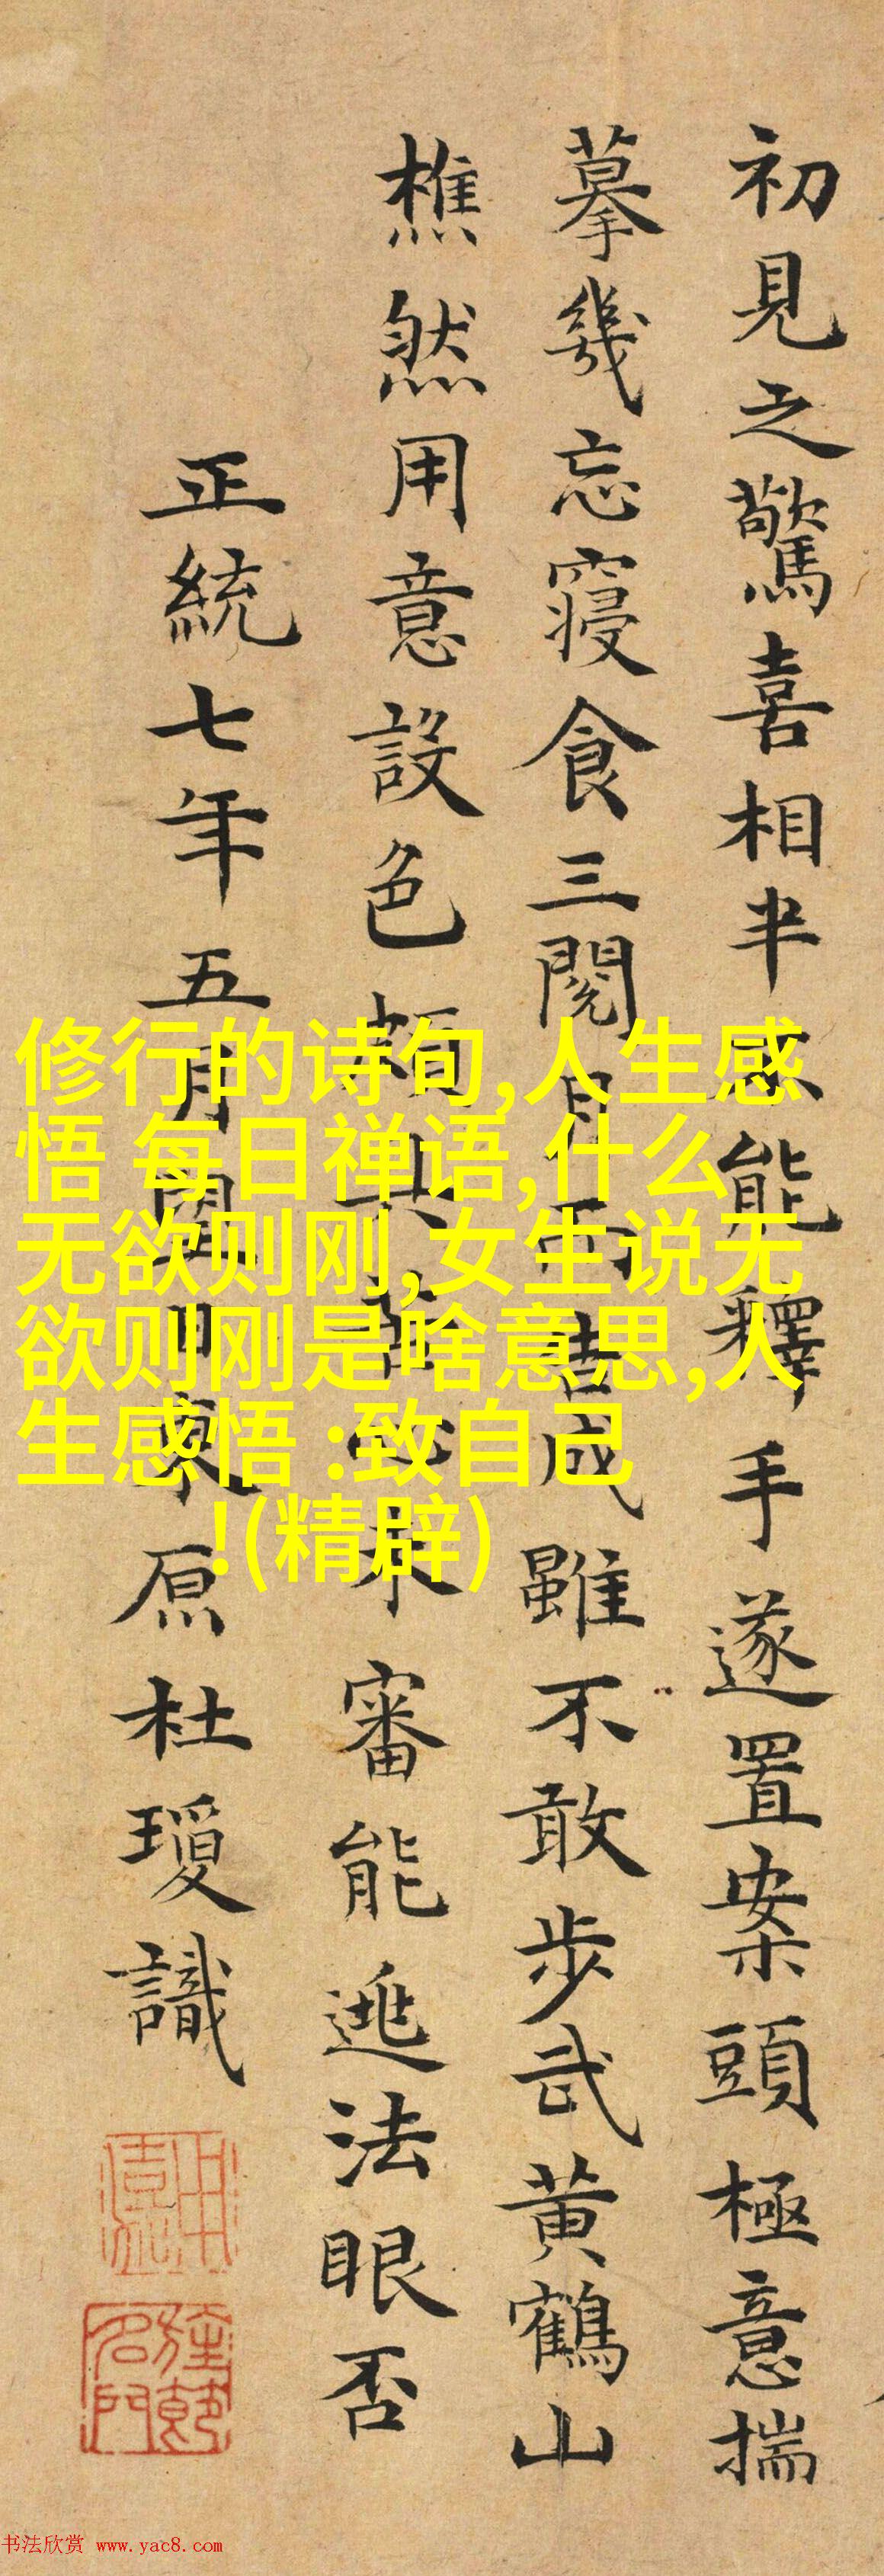 初見之驚喜相半不能釋手遂置案頭極意揣
摹幾忘寢食三閱月而告成雖不敢步武黃鶴山
樵然用意設色頗共苦心未審能逃法眼否
正統七年五月望日東原杜瓊識
修行的诗句,人生感
悟 每日禅语,什么
无欲则刚,女生说无
欲则刚是啥意思,人
生感悟 :致自己
!(精辟)
书法欣赏 www.yac8.com